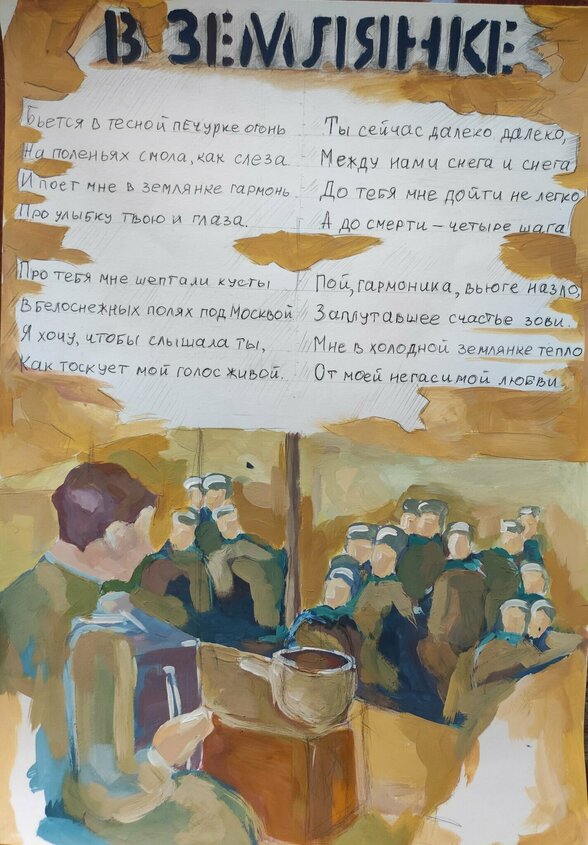 В ЗЕМЛЯНКЕ
Бьется в тесной печурке огонь
На поленьях смола, как слеза
И поет мне в землянке гармонь
Про улыбку твою и глаза.
Ты сейчас далеко далеко,
Между нами снега и снега
До тебя мне дойти не легко
А до смерти – четыре шага
Про тебя мне шептали кусты
В белоснежных полях под Москвой
Я хочу, чтобы слышала ты,
Как тоскует мой голос живой.
Пой, гармоника, вьюге назло,
Заплутавшее счастье зови.
Мне в холодной землянке тепло
От моей негасимой любви.